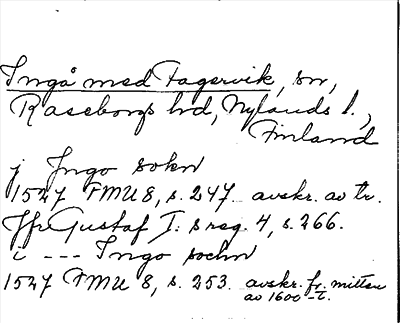 Ingå med Fagervik, sn,
Raseborgs hd, Nylands l.,
Finland
j Ingo sokn
1527 FMU 8, s. 247. avskr. av tr.
Jfr Gustaf I:s reg. 4, s. 266.
i --- Ingo sochn
1527 FMU 8, s. 253. avskr. fr. mitten
av 1600-t.